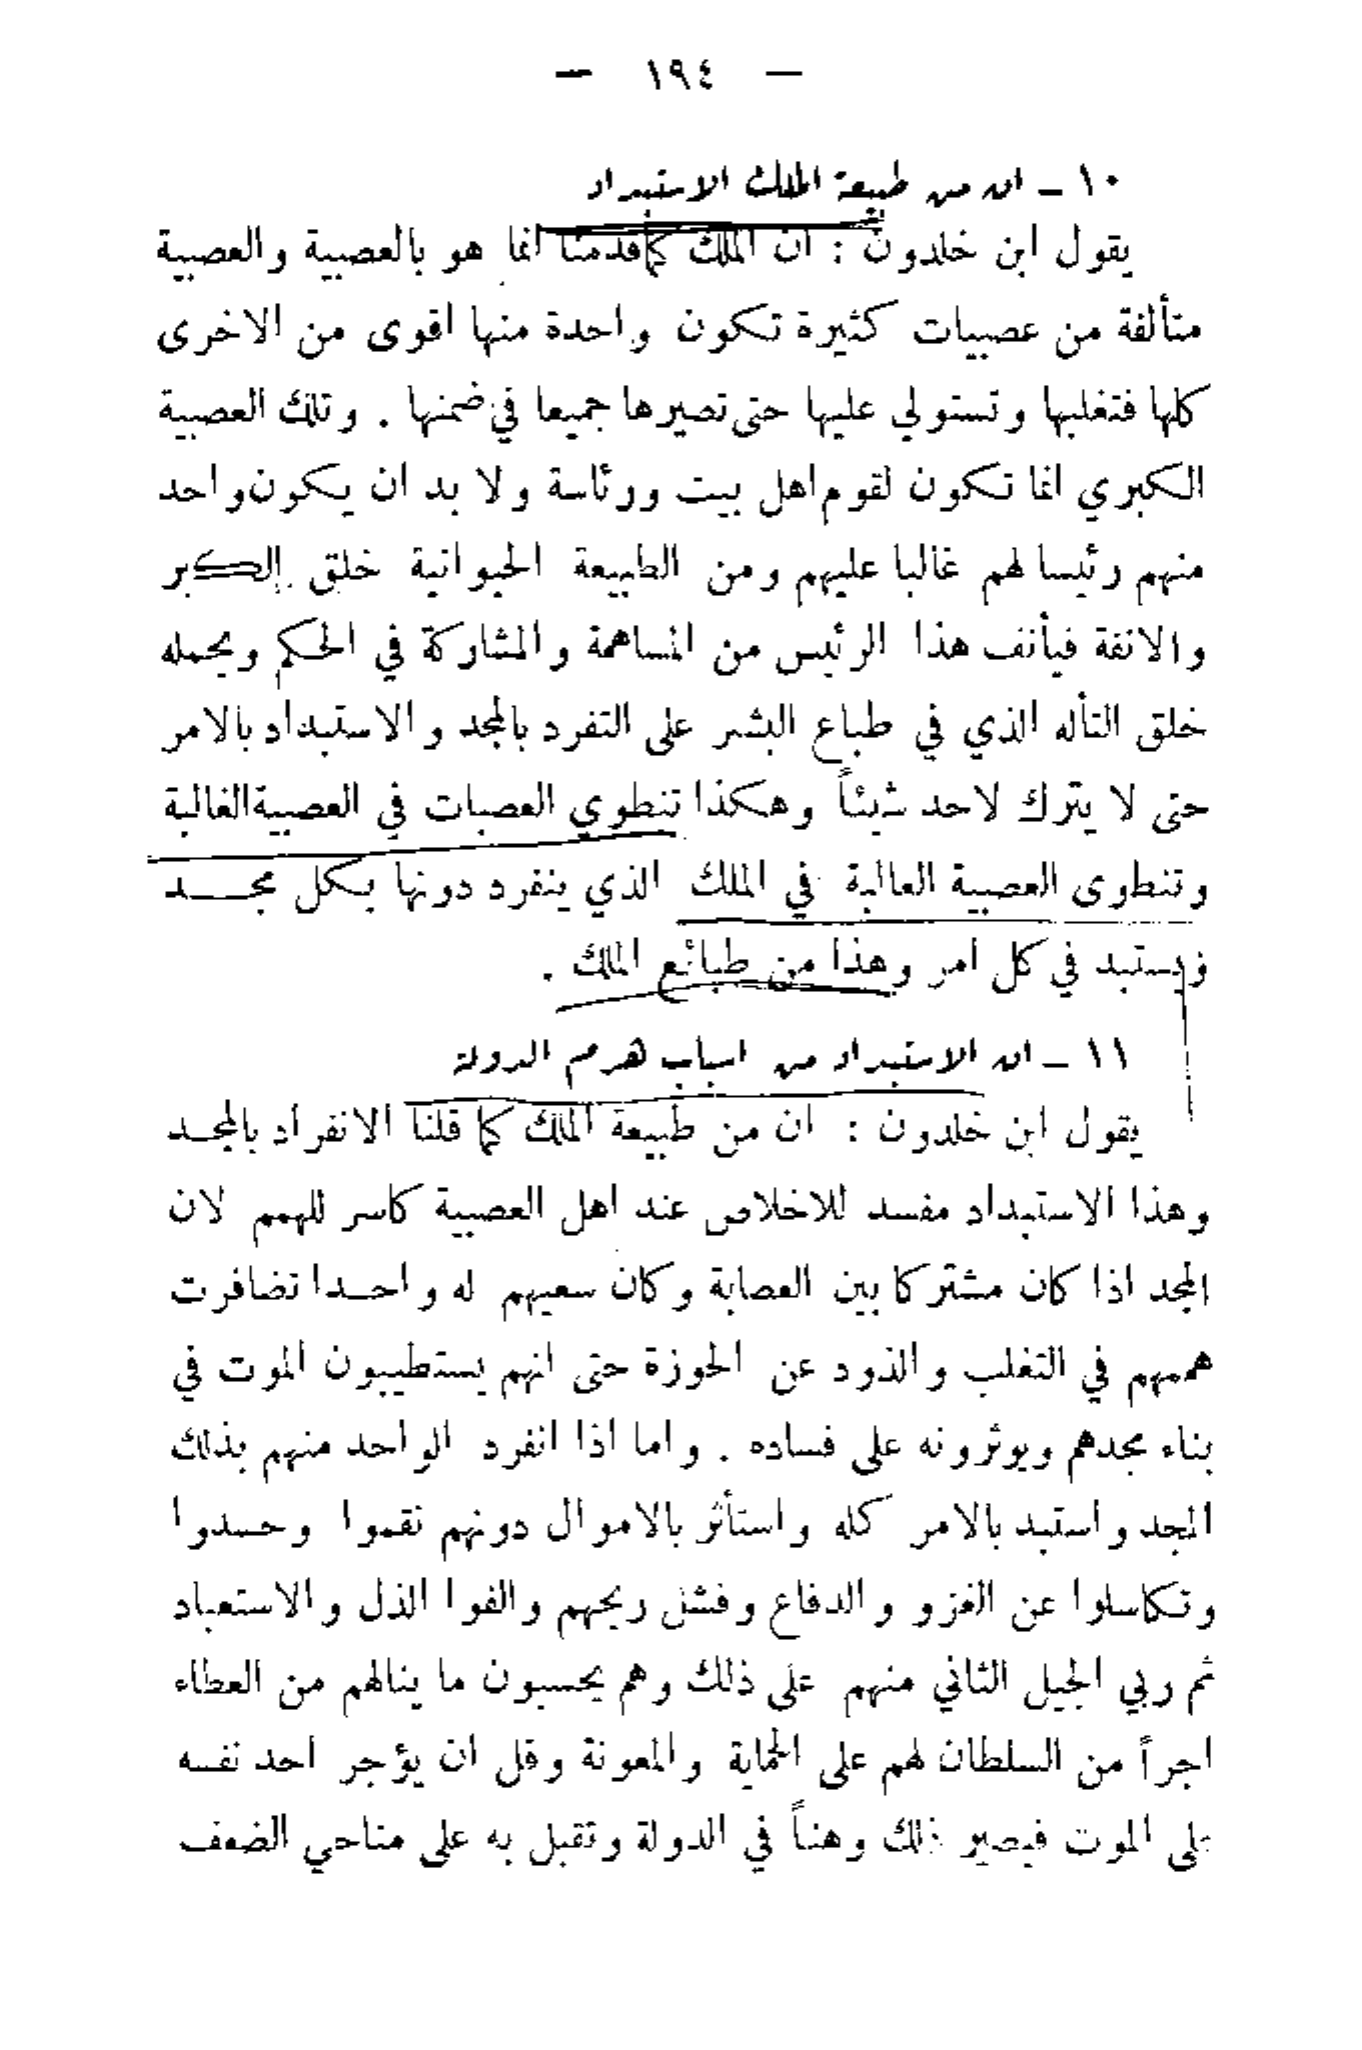 — ١٩٤ —
١٠ — ان من طبيعة الملك الاستبداد
يقول ابن خلدون : ان الملك كما قدمنا انما هو بالعصبية والعصبية
متألفة من عصبيات كثيرة تكون واحدة منها اقوى من الاخرى
كلها فتغلبها وتستولي عليها حتى تصيرها جميعا في ضمنها . وتلك العصبية
الكبري انما تكون لقوم اهل بيت ورئاسة ولا بد ان يكون واحد
منهم رئيسا لهم غالبا عليهم ومن الطبيعة الحيوانية خلق الكبر
والانفة فيأنف هذا الرئيس من المساهمة والمشاركة في الحكم ويحمله
خلق التأله الذي في طباع البشر على التفرد بالمجد والاستبداد بالامر
حتى لا يترك لاحد شيئاً وهكذا تنطوي العصبات في العصبية الغالبة
وتنطوى العصبية العالبة في الملك الذي ينفرد دونها بكل مجد
ويستبد في كل امر وهذا من طبائع الملك .
١١ — ان الاستبداد من اسباب هرم الدولة
يقول ابن خلدون : ان من طبيعة الملك كما قلنا الانفراد بالمجد
وهذا الاستبداد مفسد للاخلاص عند اهل العصبية كاسر للهمم لان
المجد اذا كان مشتركا بين العصابة وكان سعيهم له واحدا تضافرت
هممهم في التغلب والذود عن الحوزة حتى انهم يستطيبون الموت في
بناء مجدهم ويوثرونه على فساده . واما اذا انفرد الواحد منهم بذلك
المجد واستبد بالامر كله واستأثر بالاموال دونهم نقموا وحسدوا
وتكاسلوا عن الغزو والدفاع وفشل ريحهم والفوا الذل والاستعباد
ثم ربي الجيل الثاني منهم على ذلك وهم يحسبون ما ينالهم من العطاء
اجراً من السلطان لهم على الحماية والمعونة وقل ان يؤجر احد نفسه
على الموت فيصير ذلك وهناً في الدولة وتقبل به على مناحي الضعف